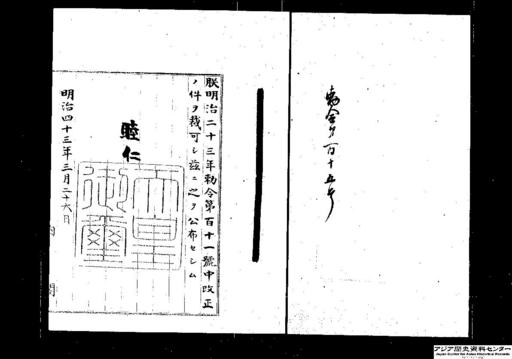 勅令第百十五号
朕明治二十三年勅令第百十一號中改正
ノ件ヲ裁可シ茲ニ之ヲ公布セシム
睦仁
天皇御璽
明治四十三年三月二十六日
内閣
アジア歴史資料センター
Japan Center for Asian Historical Records